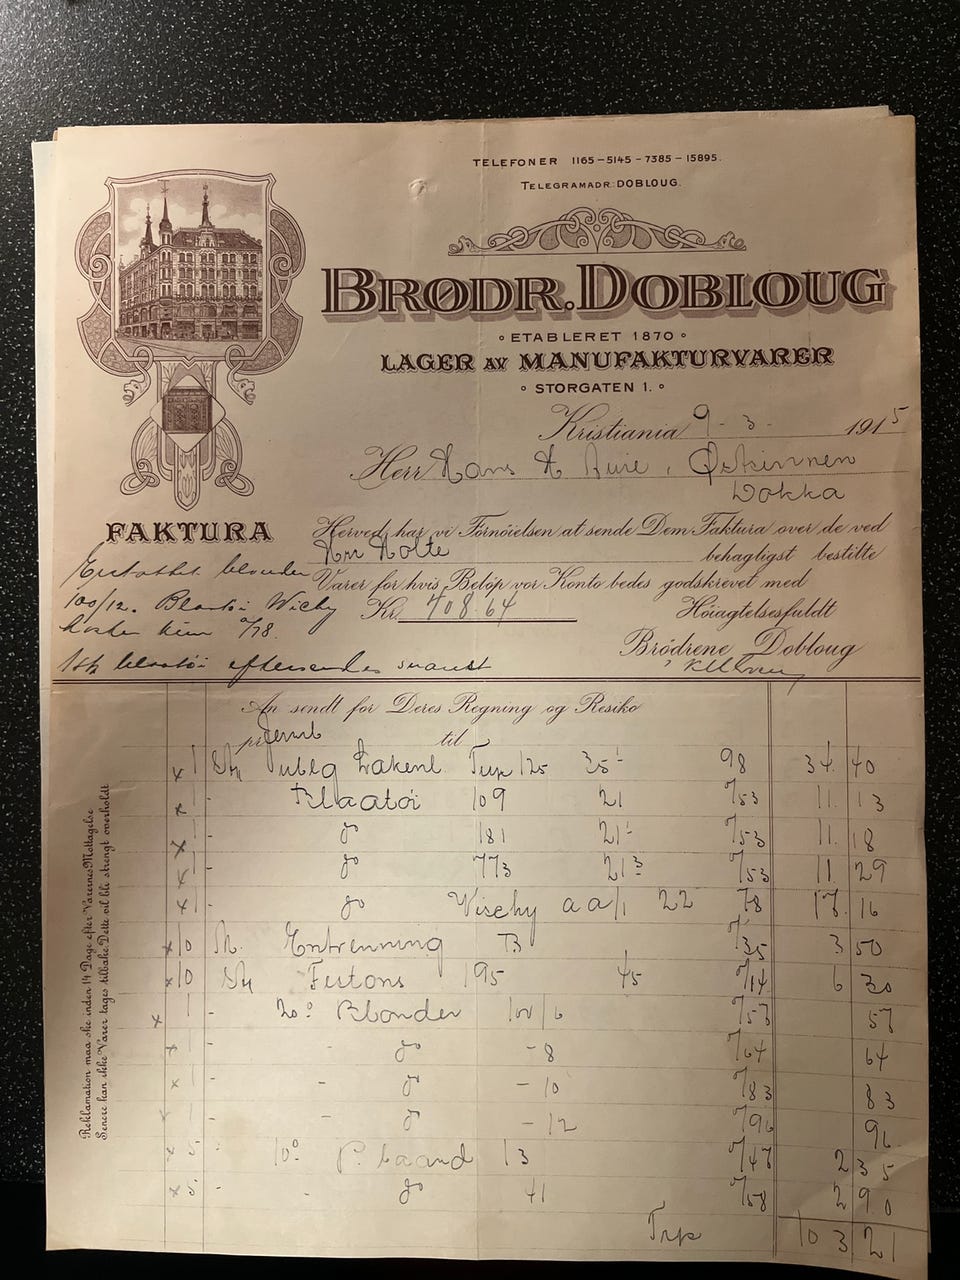 TELEFONER 1165-5145-7385-15895.
TELEGRAMADR: DOBLOUG.
BRØDR. DOBLOUG
ETABLERET 1870
LAGER AV MANUFAKTURVARER
STORGATEN 1.
Kristiania 9-3- 1915
Herr Hans H
Dokka
FAKTURA
Herved har vi Fornöielsen at sende Dem Faktura over de ved
Hrr Holte behagligst bestilte
Varer for hvis Belöp vor Konto bedes godskrevet med
Kr. 708.64 Höiagtelsesfuldt
Brödrene Dobloug
blonder
100/12. Wichy
/78.
1 stk blaatöi eftersendes snarest
An sendt for Deres Regning og Resiko
pr Jernb til
x 1 Lakenl 125 35 98 34.40
x 1 - Blaatöi 109 21 /53 11.13
x 1 - do 181 21 /53 11.18
x 1 - do 773 21 3 /53 11.29
x 1 - do Vischy aa/1 22 78 17.16
x 10 B /35 3 50
x 10 Festons 195 45 /14 6 30
x 1 - Blonder 100/6 /57 57
x 1 - - do - 8 /64 64
x 1 - do - 10 /83 83
x 1 - do - 12 /96 96
x 5 - baand 13 /47 2 35
x 5 - - do 41 /58 2 90
103 21
Reklamation maa ske inden 14 Dage efter Varernes Mottagelse
Senere kan ikke Varer tages tilbake. Dette vil bli strengt overholdt